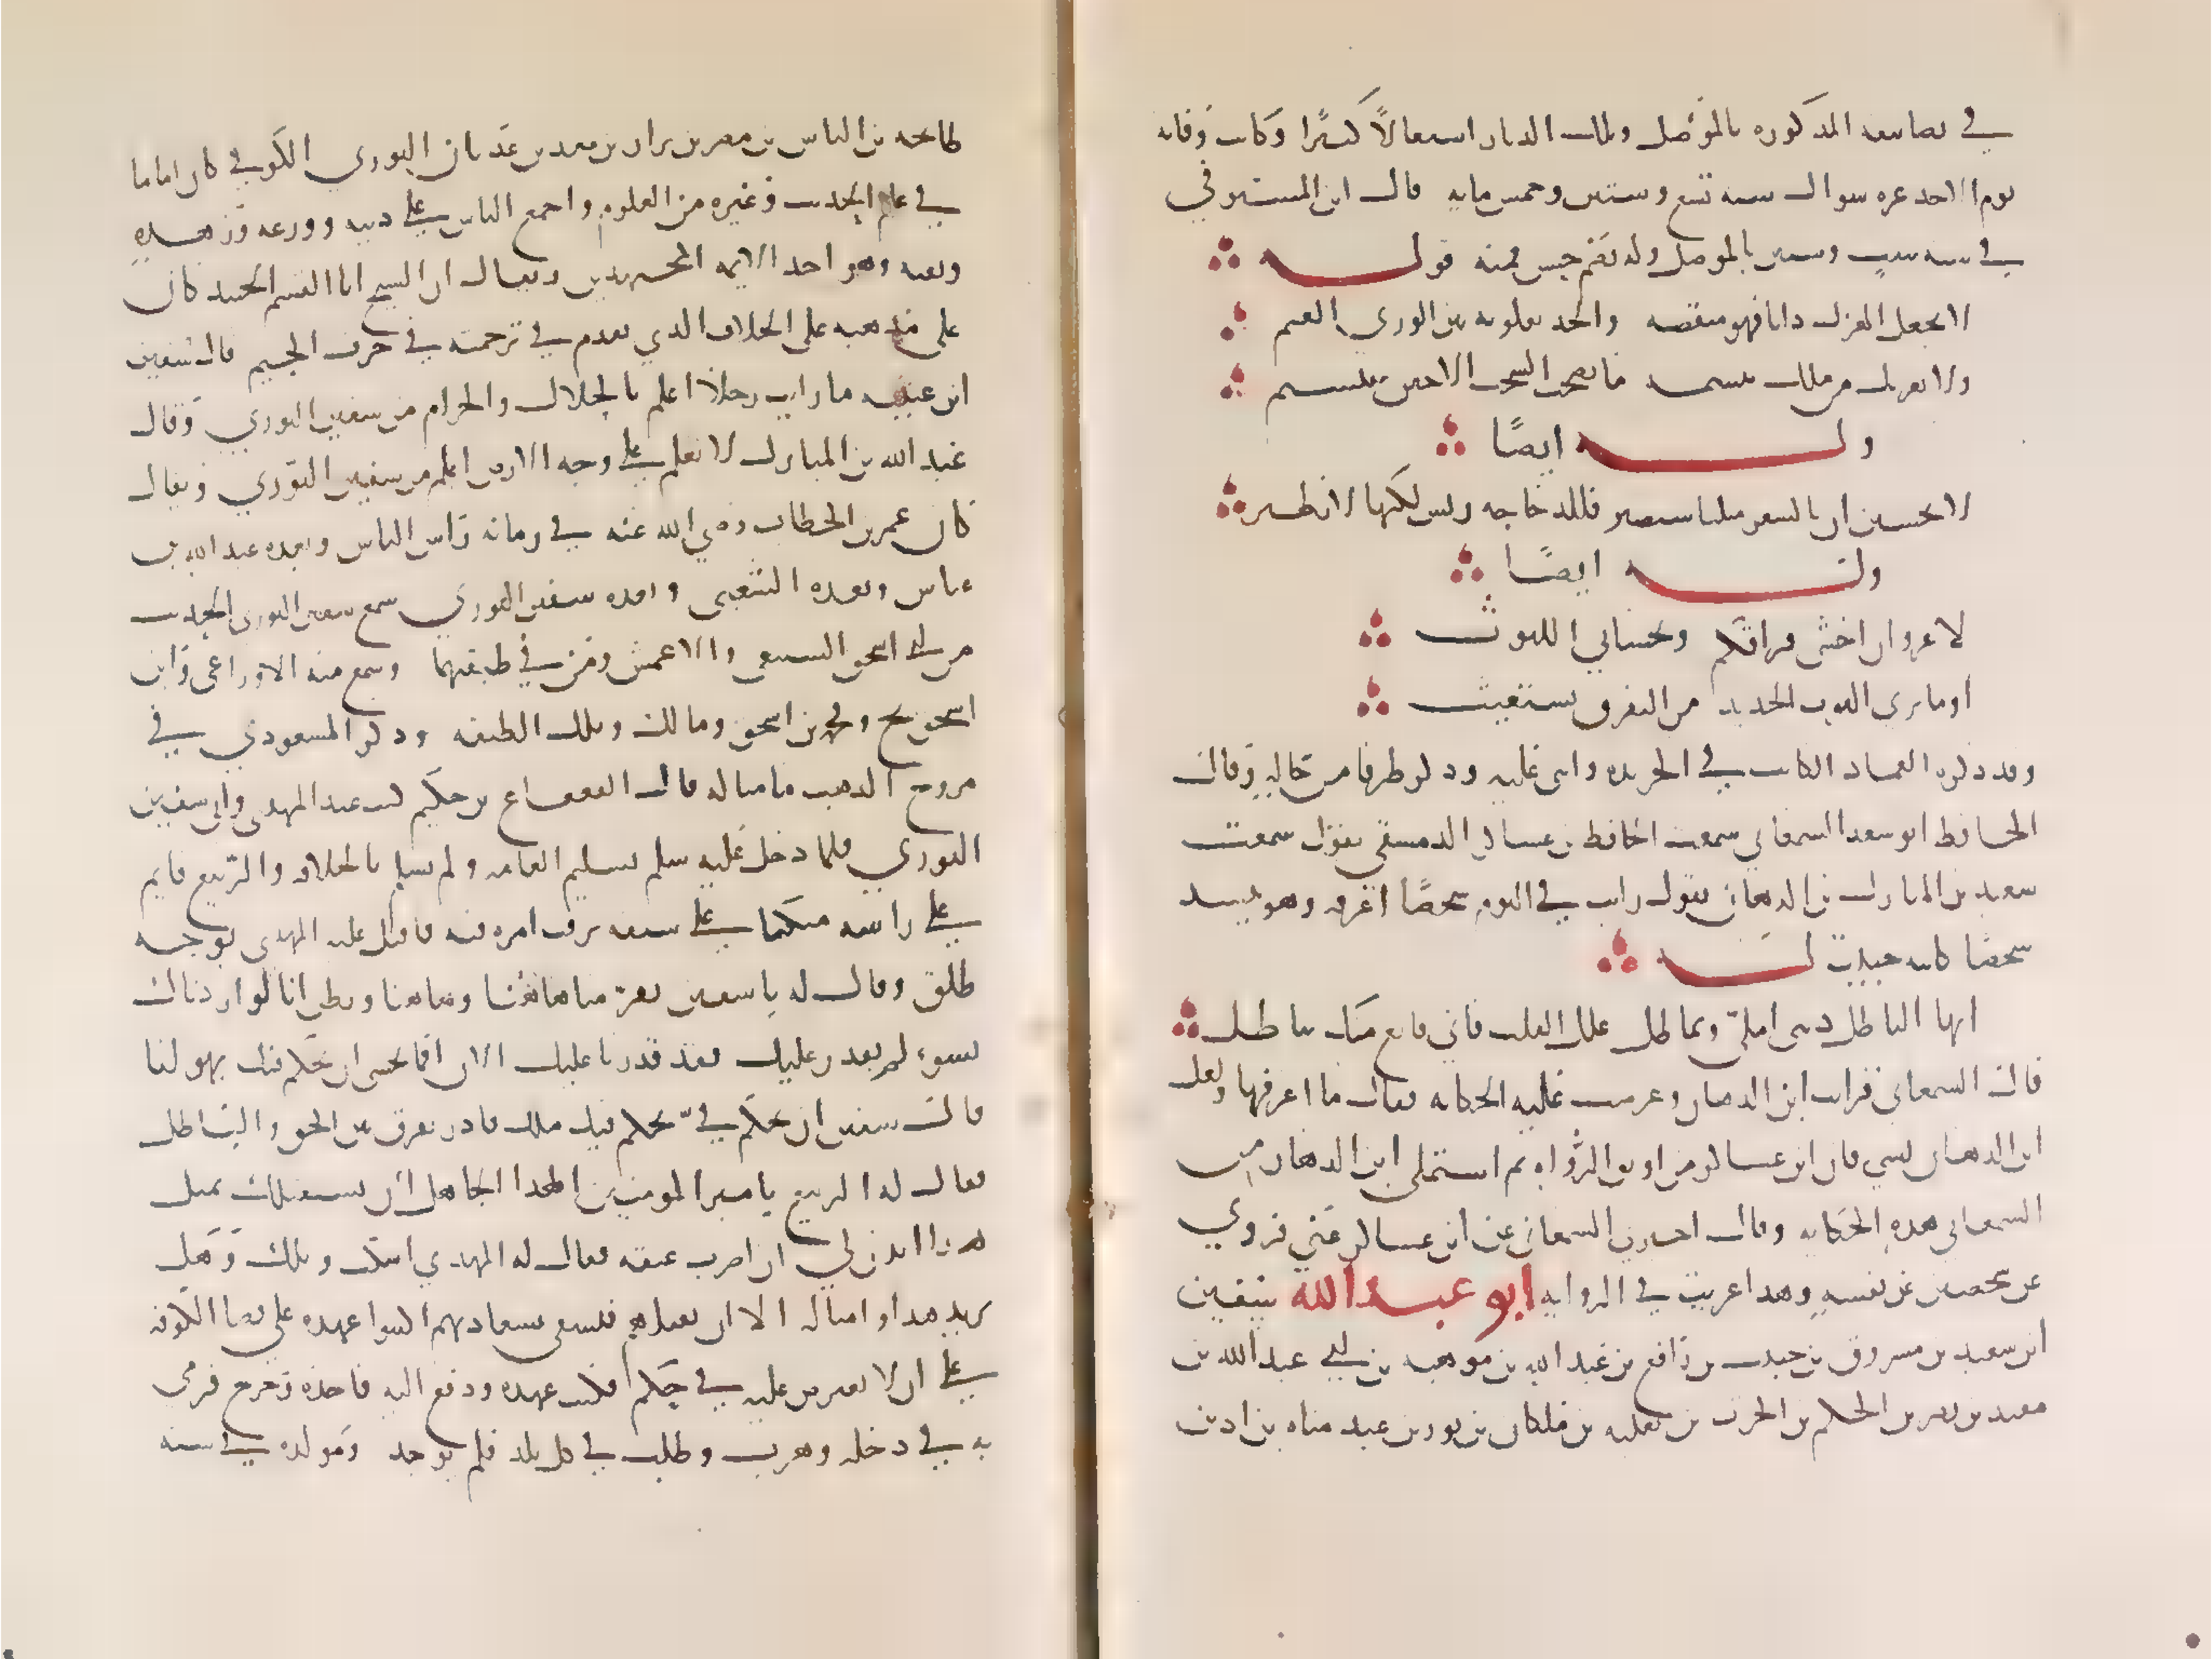 في تصانيفه المذكوره بالموصل وتلك الديار اشتغالاً كثيرًا وكانت وفاته
يوم الاحد غره شوال سنه تسع وستين وخمس مايه قال ابن المستوفي
في سنه ست وستين بالموصل وله نظم حسن فمنه قوله
لا تجعل الهزل دابا فهو منقصه والجد تعلو به بين الوري القيم
ولا يغرنك من ملك تبسمه ما تصحب السحب الا حين تبتسم
وله ايضًا
لا تحسبن ان بالشعر مثلنا ستصير فللدجاجه ريش لكنها لا تطير
وله ايضًا
لا غرو ان اخشى فراقكم وتخشاني الليوث
أو ما ترى الثوب الجديد من التفرق يستغيث
وقد ذكره العماد الكاتب في الخريده واثنى عليه وذكر طرفا من حاله وقال
الحافظ ابو سعد السمعاني سمعت الحافظ بن عساكر الدمشقي يقول سمعت
سعيد بن المبارك بن الدهان يقول رايت في النوم شخصًا اعرفه وهو ينشد
شخصًا كانه حبيب له
ايها الماطل ديني املي وتماطل علل القلب فاني قانع منك بباطل
قال السمعاني فرايت ابن الدهان وعرضت عليه الحكايه فقال ما اعرفها ولعل
ابن الدهان نسي فان ابن عساكر من اوثق الرواه ثم استملى ابن الدهان من
السمعاني هذه الحكايه وقال اخبرني السمعاني عن ابن عساكر عني فروي
عن شخصين عن نفسه وهذا غريب في الروايه ابو عبد الله سفين
ابن سعيد بن مسروق بن حبيب بن رافع بن عبد الله بن موهبه بن ابي عبد الله بن
منقذ بن نصر بن الحكم بن الحرث بن ثعلبه بن ملكان بن ثور بن عبد مناه بن اد بن
طابخه بن الياس بن مضر بن نزار بن معد بن عدنان الثوري الكوفي كان اماما
في علم الحديث وغيره من العلوم واجمع الناس على دينه وورعه وزهده
وثقته وهو احد الايمه المجتهدين ويقال ان الشيخ ابا القسم الجنيد كان
على مذهبه على الخلاف الذي تقدم في ترجمته في حرف الجيم قال سفين
ابن عيينه ما رايت رجلاً اعلم بالحلال والحرام من سفين الثوري وقال
عبد الله بن المبارك لا نعلم على وجه الارض اعلم من سفين الثوري ويقال
كان عمر بن الخطاب رضي الله عنه في زمانه راس الناس وبعده عبد الله بن
عباس وبعده الشعبي وبعده سفين الثوري سمع سفين الثوري الحديث
من ابي اسحق السبيعي والاعمش ومن في طبقتهما وسمع منه الاوزاعي وابن
جريج ومحمد بن اسحق ومالك وتلك الطبقه وذكر المسعودي في
مروج الذهب ما مثاله قال القعقاع بن حكيم كنت عند المهدي واتي سفين
الثوري فلما دخل عليه سلم تسليم العامه ولم يسلم بالخلافه والربيع قايم
على راسه متكيا على سيفه يرقب امره فيه فاقبل عليه المهدي بوجه
طلق وقال له يا سفين تفر منا هاهنا وهاهنا وتظن انا لو اردناك
بسوء لم نقدر عليك فقد قدرنا عليك الان افما تخشى ان نحكم فيك بهوانا
قال سفين ان تحكم فيّ يحكم فيك ملك قادر يفرق بين الحق والباطل
فقال له الربيع يا امير المومنين الهذا الجاهل ان يستقبلك بمثل
هذا ايذن لي ان اضرب عنقه فقال له المهدي اسكت ويلك وهل
يريد هذا وامثاله الا ان نقتلهم فنشقى بسعادتهم اكتبوا عهده على قضا الكوفه
على ان لا يعترض عليه في حكم فكتب عهده ودفع اليه فاخذه وخرج فرمى
به في دجله وهرب وطلب في كل بلد فلم يوجد ومولده في سنه